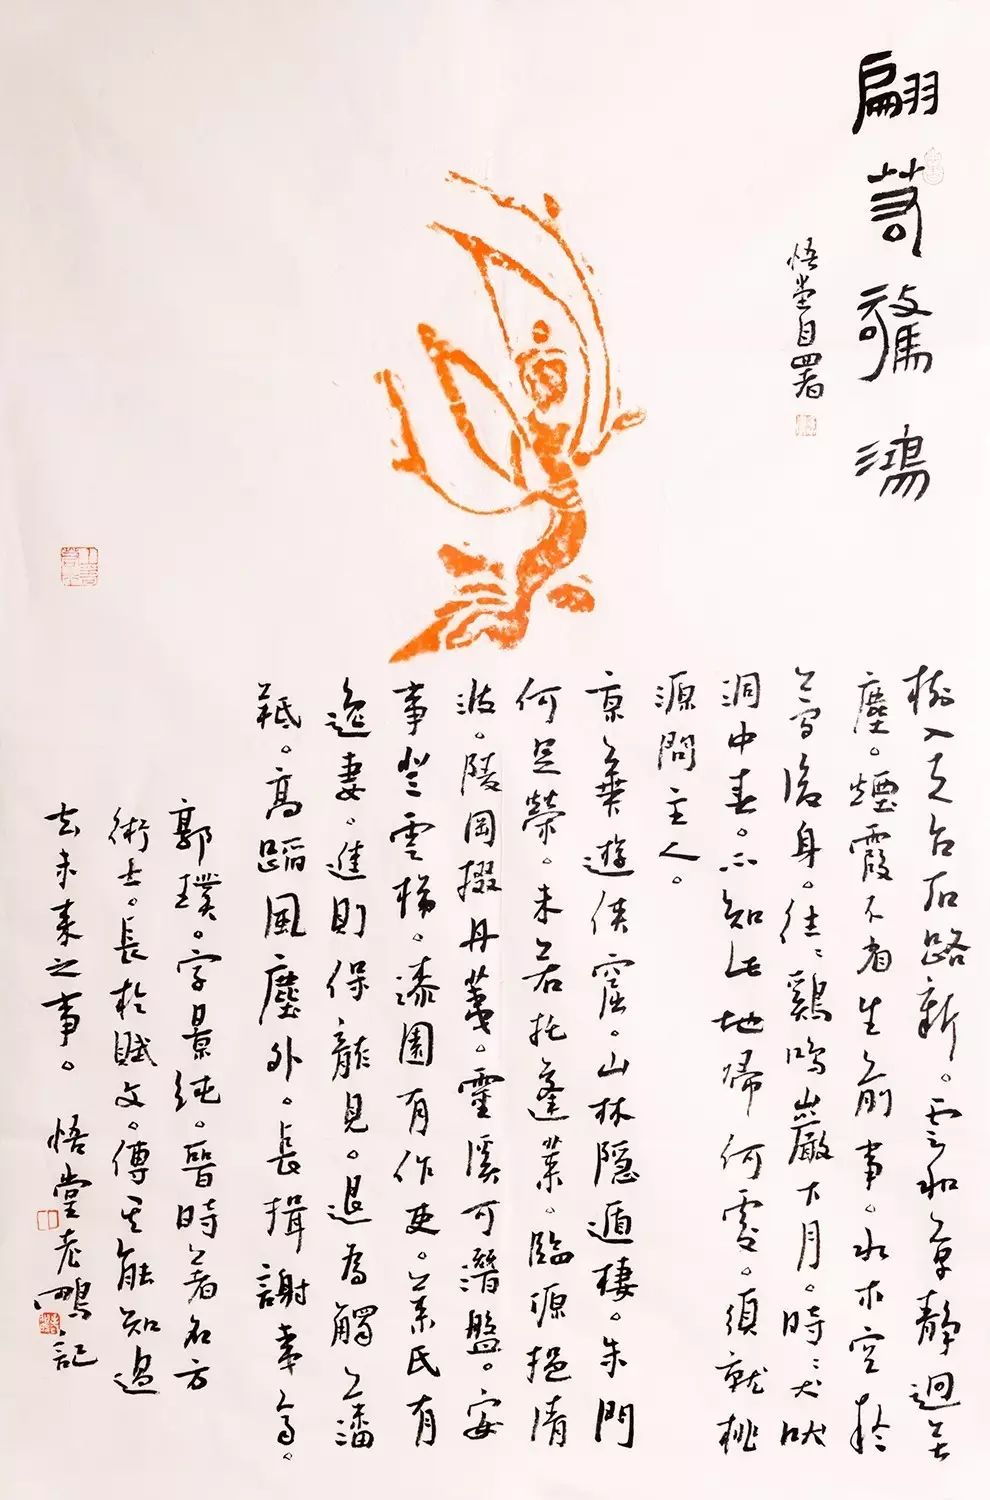 翩若驚鴻
悟堂自署
樹入天台石路新。雲和草靜迥無
塵。煙霞不省生前事。水木空疑
夢後身。往〻雞鳴巖下月。時〻犬吠
洞中春。不知此地歸何處。須就桃
源問主人。
京華遊俠窟。山林隱遁棲。朱門
何足榮。未若托蓬萊。臨源挹清
波。陵岡掇丹荑。靈溪可潛盤。安
事登雲梯。漆園有作吏。萊氏有
逸妻。進則保龍見。退為觸藩
羝。高蹈風塵外。長揖謝夷齊。
郭璞。字景純。晉時著名方
術士。長於賦文。傳其能知過
去未來之事。悟堂老鵬記